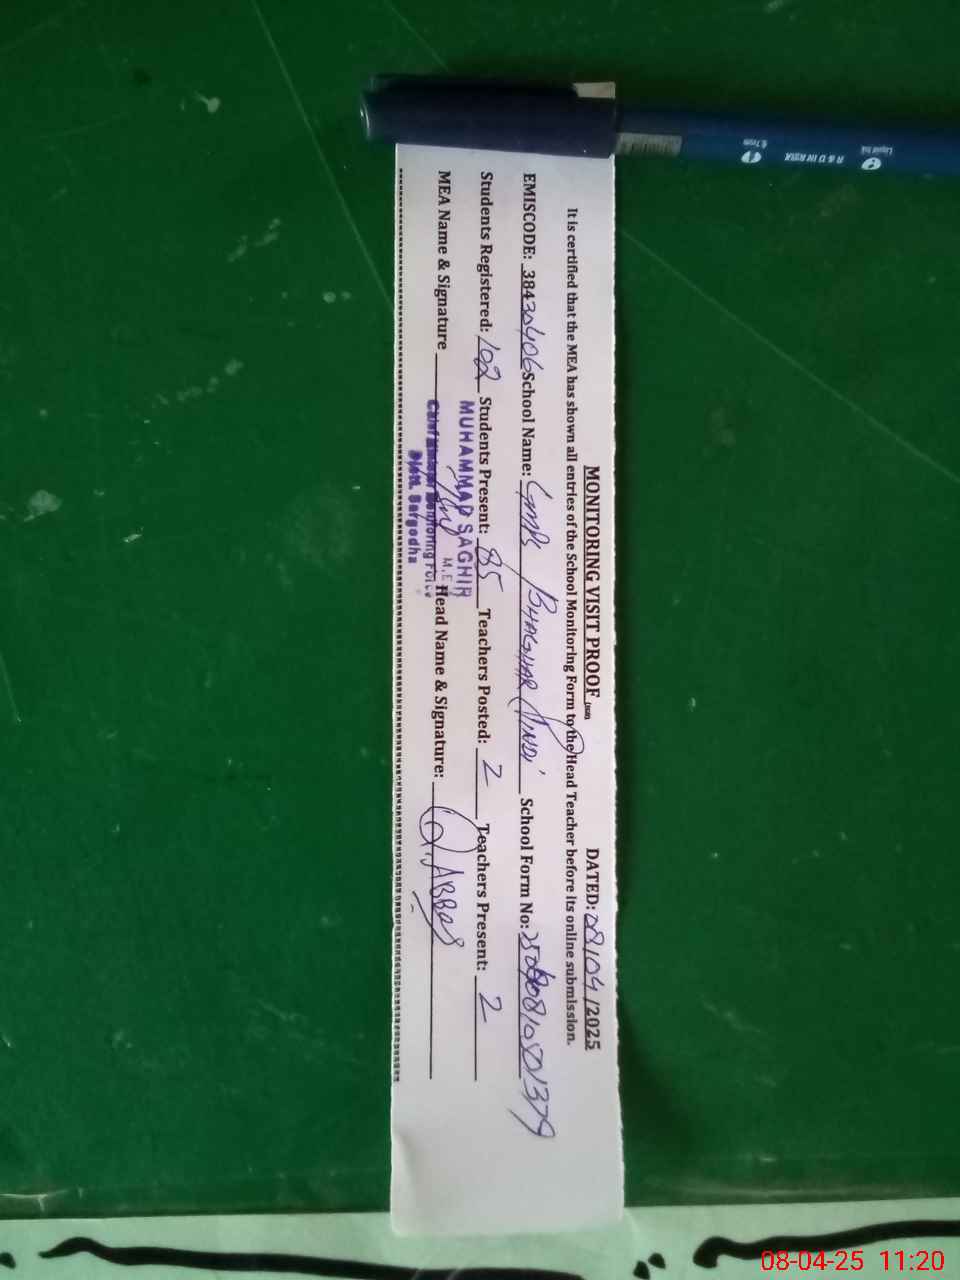 MONITORING VISIT PROOF DATED: 08/04/2025
It is certified that the MEA has shown all entries of the School Monitoring Form to the Head Teacher before its online submission.
EMISCODE: 38430406 School Name: GMPS BHAGHAR School Form No:
Students Registered: 102 Students Present: 85 Teachers Posted: 2 Teachers Present: 2
MEA Name & Signature Head Name & Signature: Q. ABBAS
MUHAMMAD SAGHIR
M.E.A
Distt. Sargodha
Liquid Ink
R & D IN RSIA
0.7mm
08-04-25 11:20